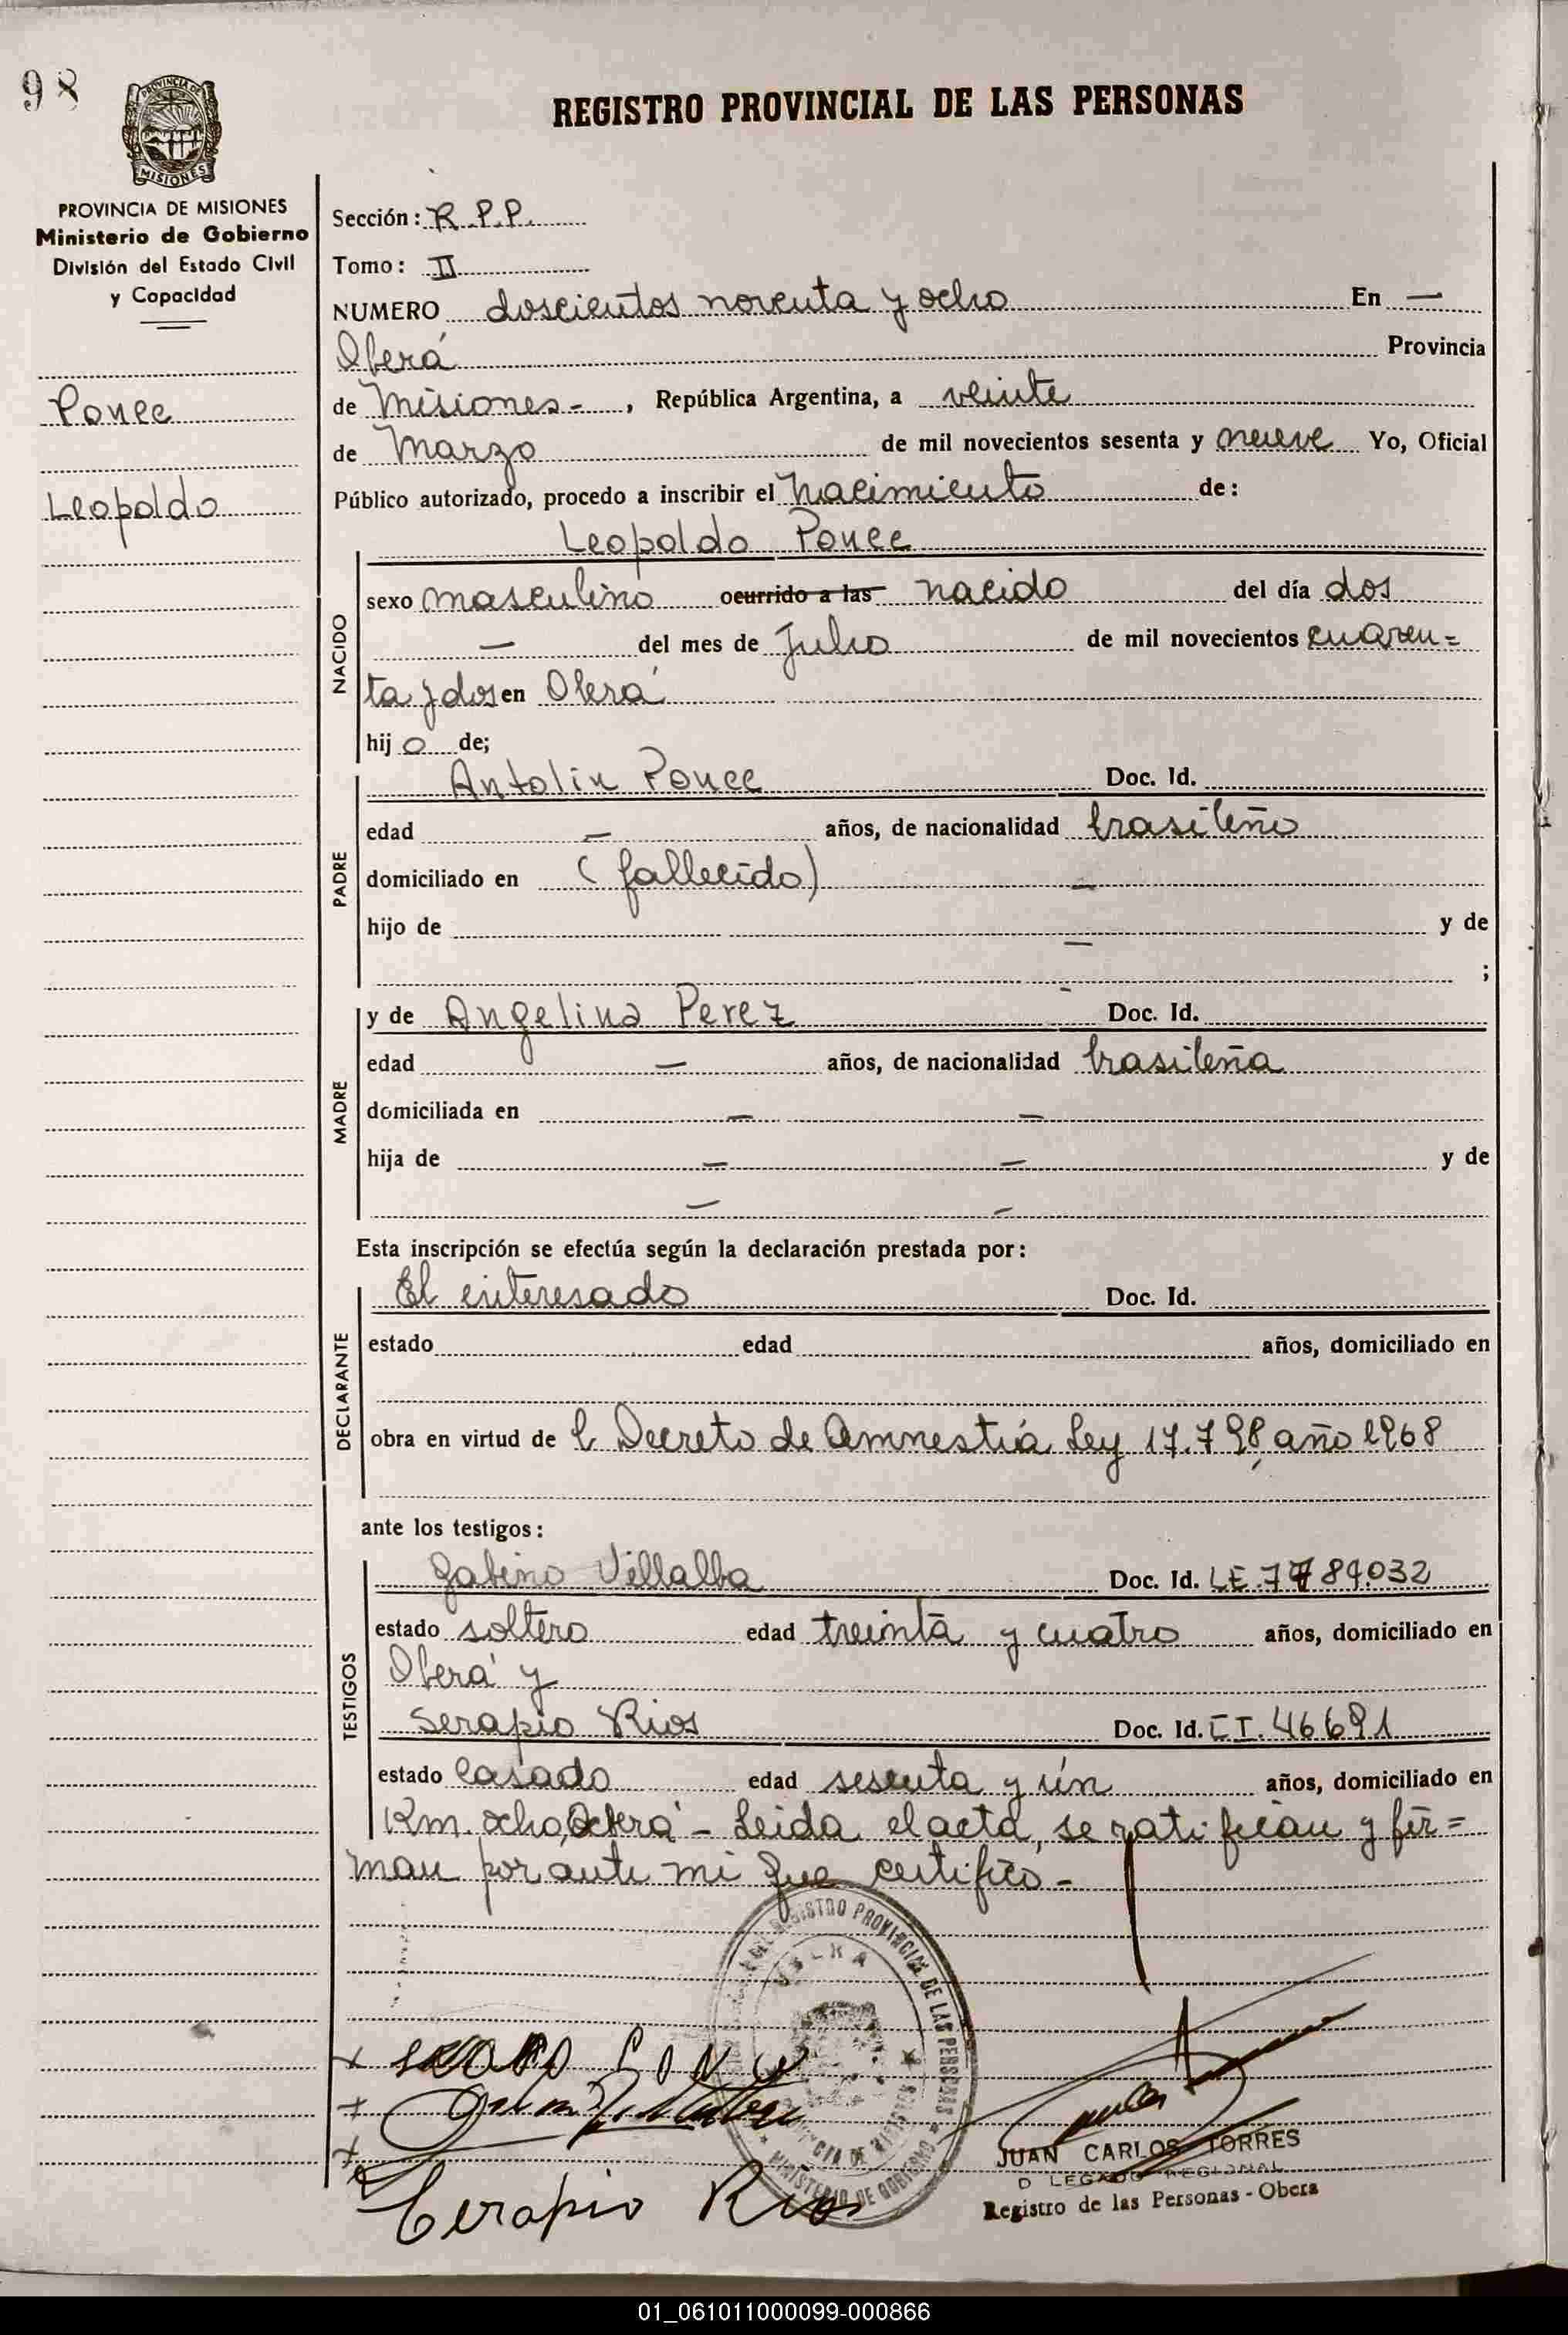 98
REGISTRO PROVINCIAL DE LAS PERSONAS
PROVINCIA DE MISIONES
Ministerio de Gobierno
División del Estado Civil
y Capacidad
Ponce
Leopoldo
Sección: R.P.P.
Tomo: II
NUMERO doscientos noventa y ocho En —
Oberá Provincia
de Misiones-, República Argentina, a veinte
de Marzo de mil novecientos sesenta y nueve Yo, Oficial
Público autorizado, procedo a inscribir el Nacimiento de:
Leopoldo Ponce
NACIDO
sexo masculino ocurrido a las nacido del día dos
— del mes de Julio de mil novecientos cuaren=
ta y dos en Oberá
hijo de;
PADRE
Antolin Ponce Doc. Id.
edad — años, de nacionalidad brasileño
domiciliado en (fallecido) —
hijo de — y de
- ;
MADRE
y de Angelina Perez Doc. Id.
edad — años, de nacionalidad brasileña
domiciliada en — —
hija de — — y de
— —
Esta inscripción se efectúa según la declaración prestada por:
DECLARANTE
El interesado Doc. Id.
estado edad años, domiciliado en
obra en virtud de l Decreto de Amnestia Ley 17.798, año 1968
ante los testigos:
TESTIGOS
Gabino Villalba Doc. Id. LE.7789.032
estado soltero edad treinta y cuatro años, domiciliado en
Oberá y
Serapio Rios Doc. Id. C.I. 46691
estado Casado edad sesenta y ún años, domiciliado en
Km. ocho, Oberá - Leida el acta, se ratifican y fir=
man por ante mi que certifico.-
REGISTRO PROVINCIAL DE LAS PERSONAS
MINISTERIO DE GOBIERNO
Serapio Rios
JUAN CARLOS TORRES
DELEGADO REGIONAL
Registro de las Personas - Obera
01_061011000099-000866